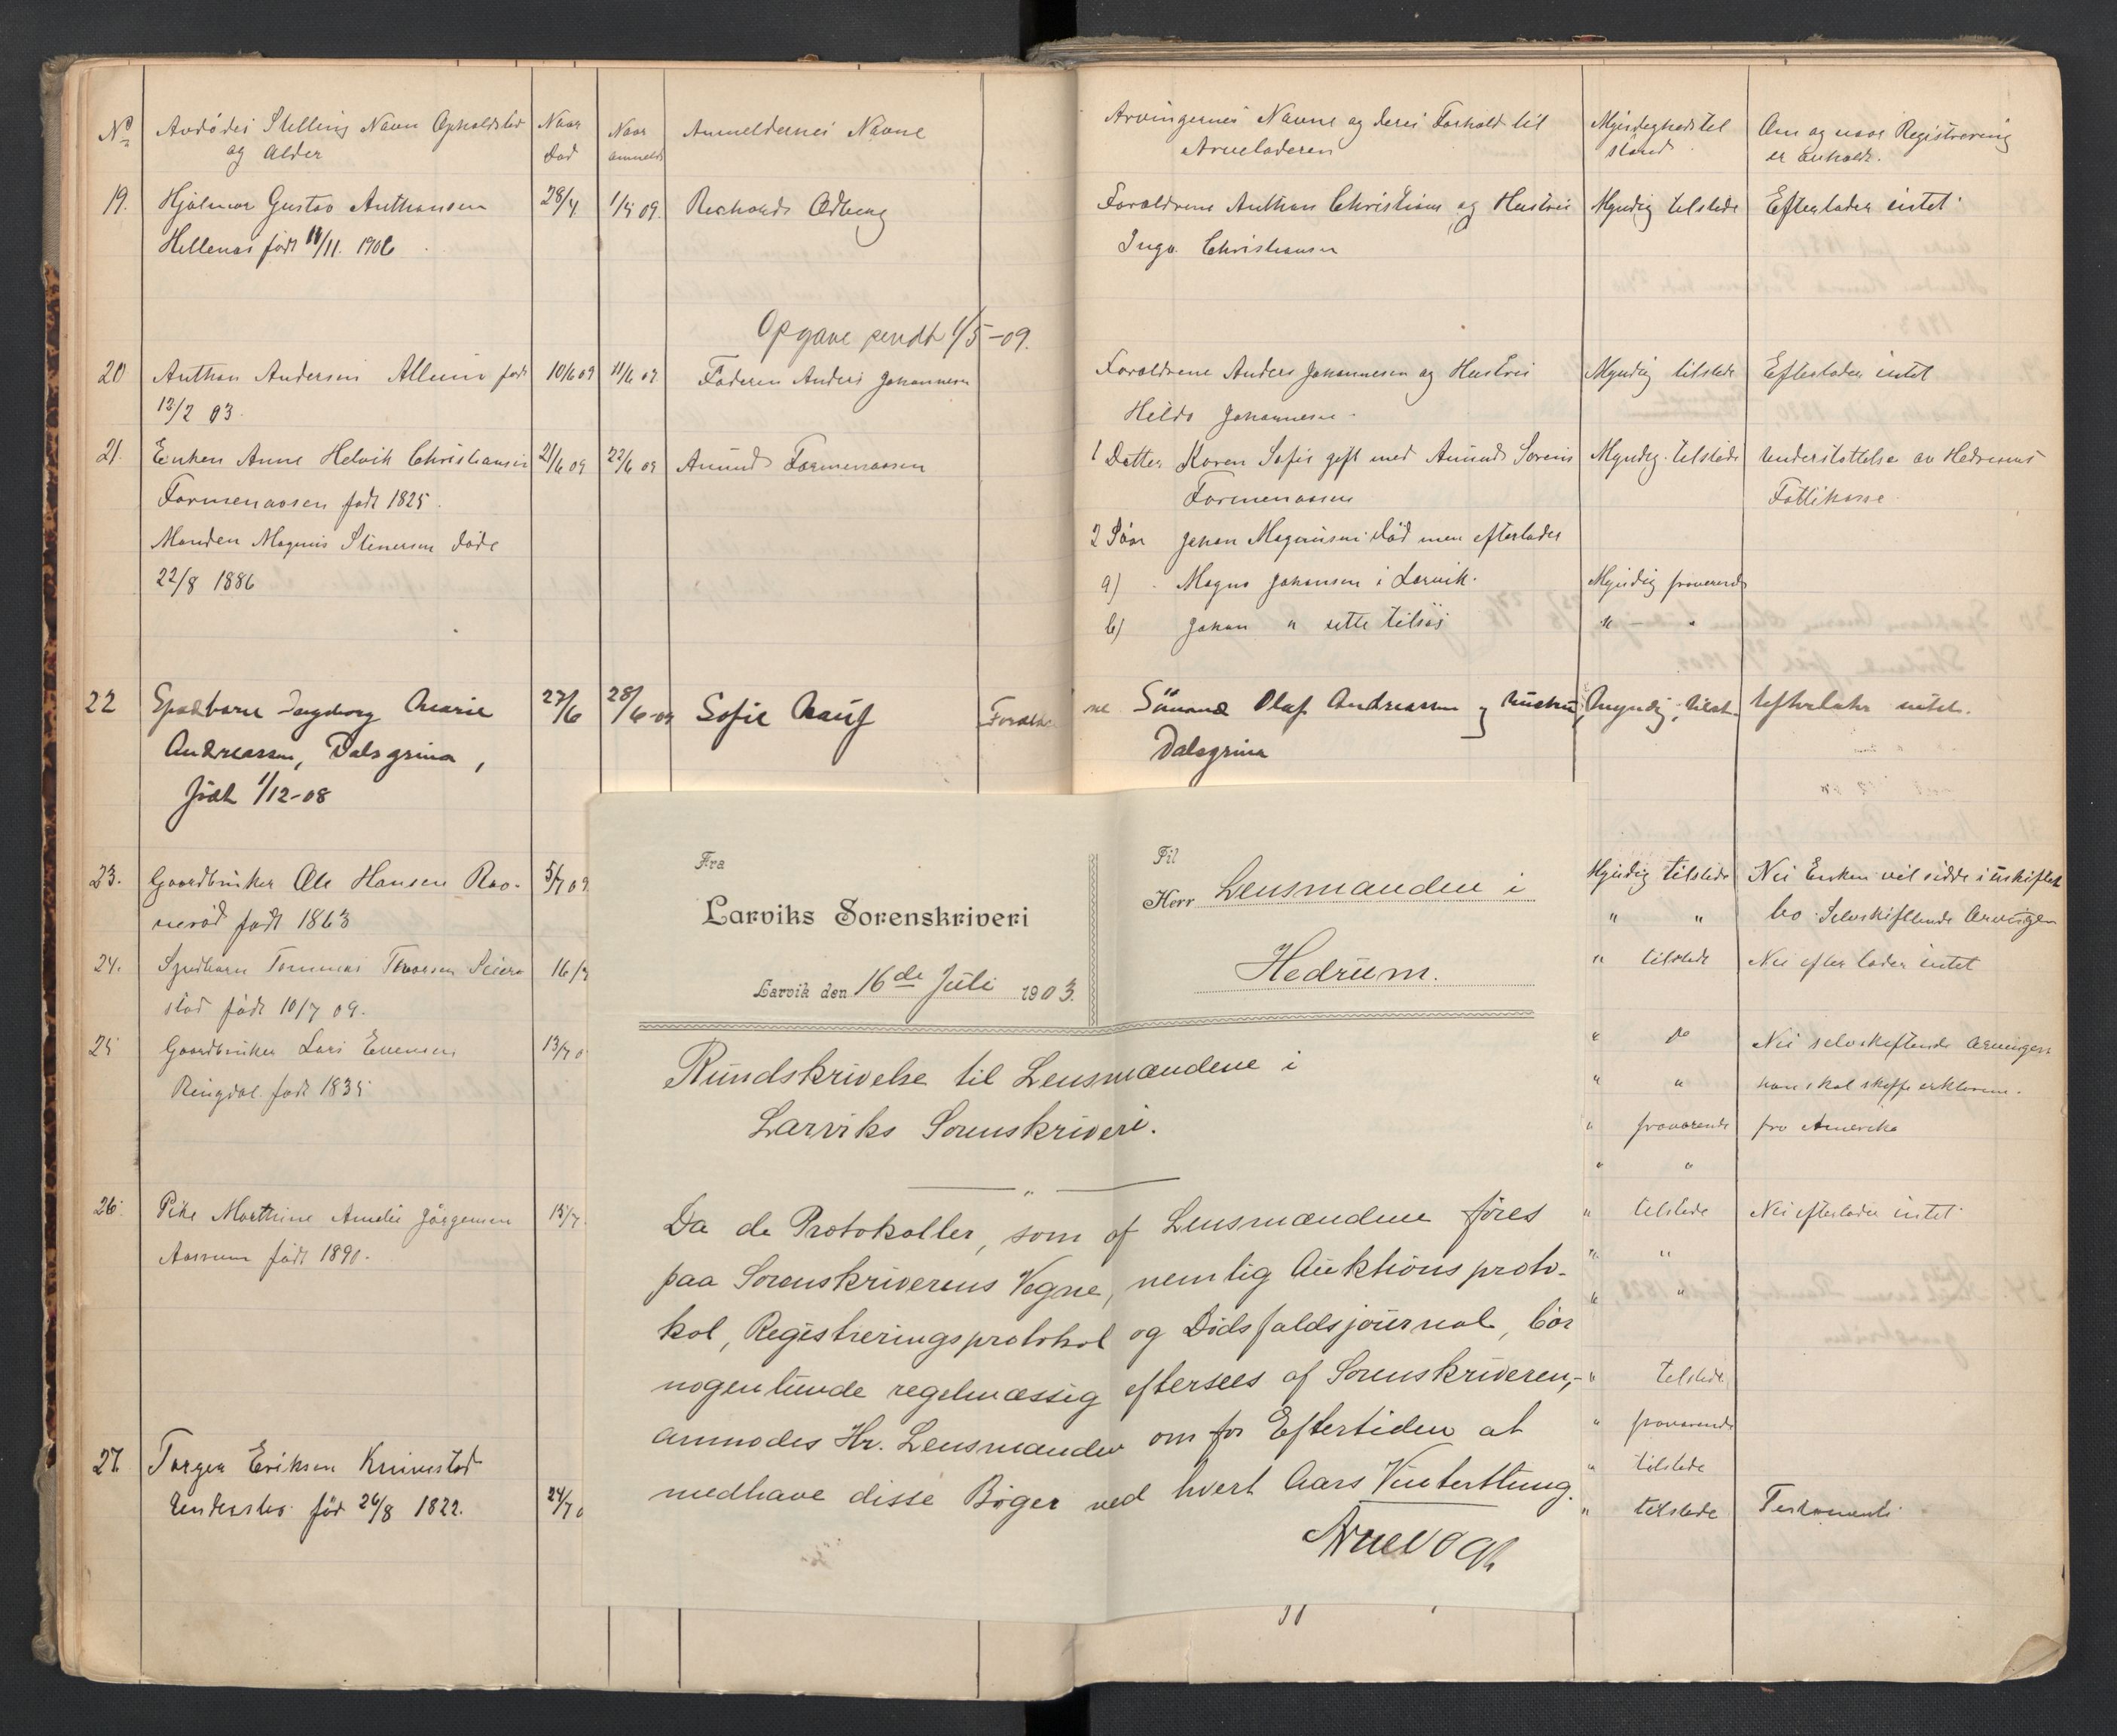 No
Avdødes Stilling Navn Opholdsted
og Alder
Naar
død
Naar
anmeldt
Anmeldernes Navne
Arvingernes Navne og deres Forhold til
Arveladeren
Myndighedstil
stand
Om og naar Registrering
er anholdt.
19.
Hjalmar Gustav Anthonsen
Hellenes født 11/11. 1906
28/4
1/5 09.
Richards Ødberg
Forældrene Anthon Christians og Hustru
Inga Christiansen
Myndig tilstede
Efterlader intet
Opgave sendt 1/5-09.
20
Anthon Andersen født
13/2 03.
10/6 09
11/6 09
Faderen Anders Johannesen
Forældrene Anders Johannesen og Hustru
Hilda Johannesen
Myndig tilstede
Efterlader intet
21.
Enken Anne Helvik Christiansen
født 1825.
Manden Magnus Stenersen døde
22/8 1886
21/6 09
22/6 09
Amund
1 Datter Karen Sofie gift med Amund Sørens
2 Søn Johan Magnusen død men efterlader
a) Magna Johansen i Larvik.
b) Johan " sette tilsjøs
Myndig tilstede
Myndig fraverende
" - "
Understøttelse av Hedrums
Fattikasse
22
Spædbarn Ingeborg Marie
Andreassen, Dalsgrina,
født 1/12-08
27/6
28/6-09
Sofie
Foræld
ne Sömand Olaf Andreassen og hustru,
Dalsgrina
myndig, tilst.
efterlader intet.
23.
Gaardbruker Ole Hansen Rao-
nerød født 1863
5/7 09
Myndig tilstede
" "
Nei Enken vil sidde i uskiftet
bo. Selvskiftende Arvinger
24.
Spedbarn Tommas
stad født 10/7 09.
16/7
" tilstede
Nei efterlader intet
25
Gaardbruker Lars Evensen
Ringdal født 1835
13/7 0
" do
" "
" fraværende
" "
Nei selvskiftende Arvinger
som skal skaffe erklæring.
fra Amerika
26.
Pike Marthine Amelie Jørgensen
Aasrum født 1890.
15/7
" tilstede
" "
" "
" tilstede
" fraværende
" tilstede
Nei efterlader intet
27.
Torger Eriksen
født 26/8 1822.
24/7 0
" tilstede
Testamente
Fra
Larviks Sorenskriveri
Larvik den 16de Juli 1903.
Til
Herr Lensmanden i
Hedrum.
Rundskrivelse til Lensmændene i
Larviks Sorenskriveri.
Da de Protokoller, som af Lensmændene føres
paa Sorenskriverens Vegne, nemlig Auktionsproto-
kol, Registreringsprotokol og Dødsfaldsjournal, bør
nogenlunde regelmæssig eftersees af Sorenskriveren,-
anmodes Hr. Lensmanden om for Eftertiden at
medhave disse Bøger ved hvert Aars Vinterthing.